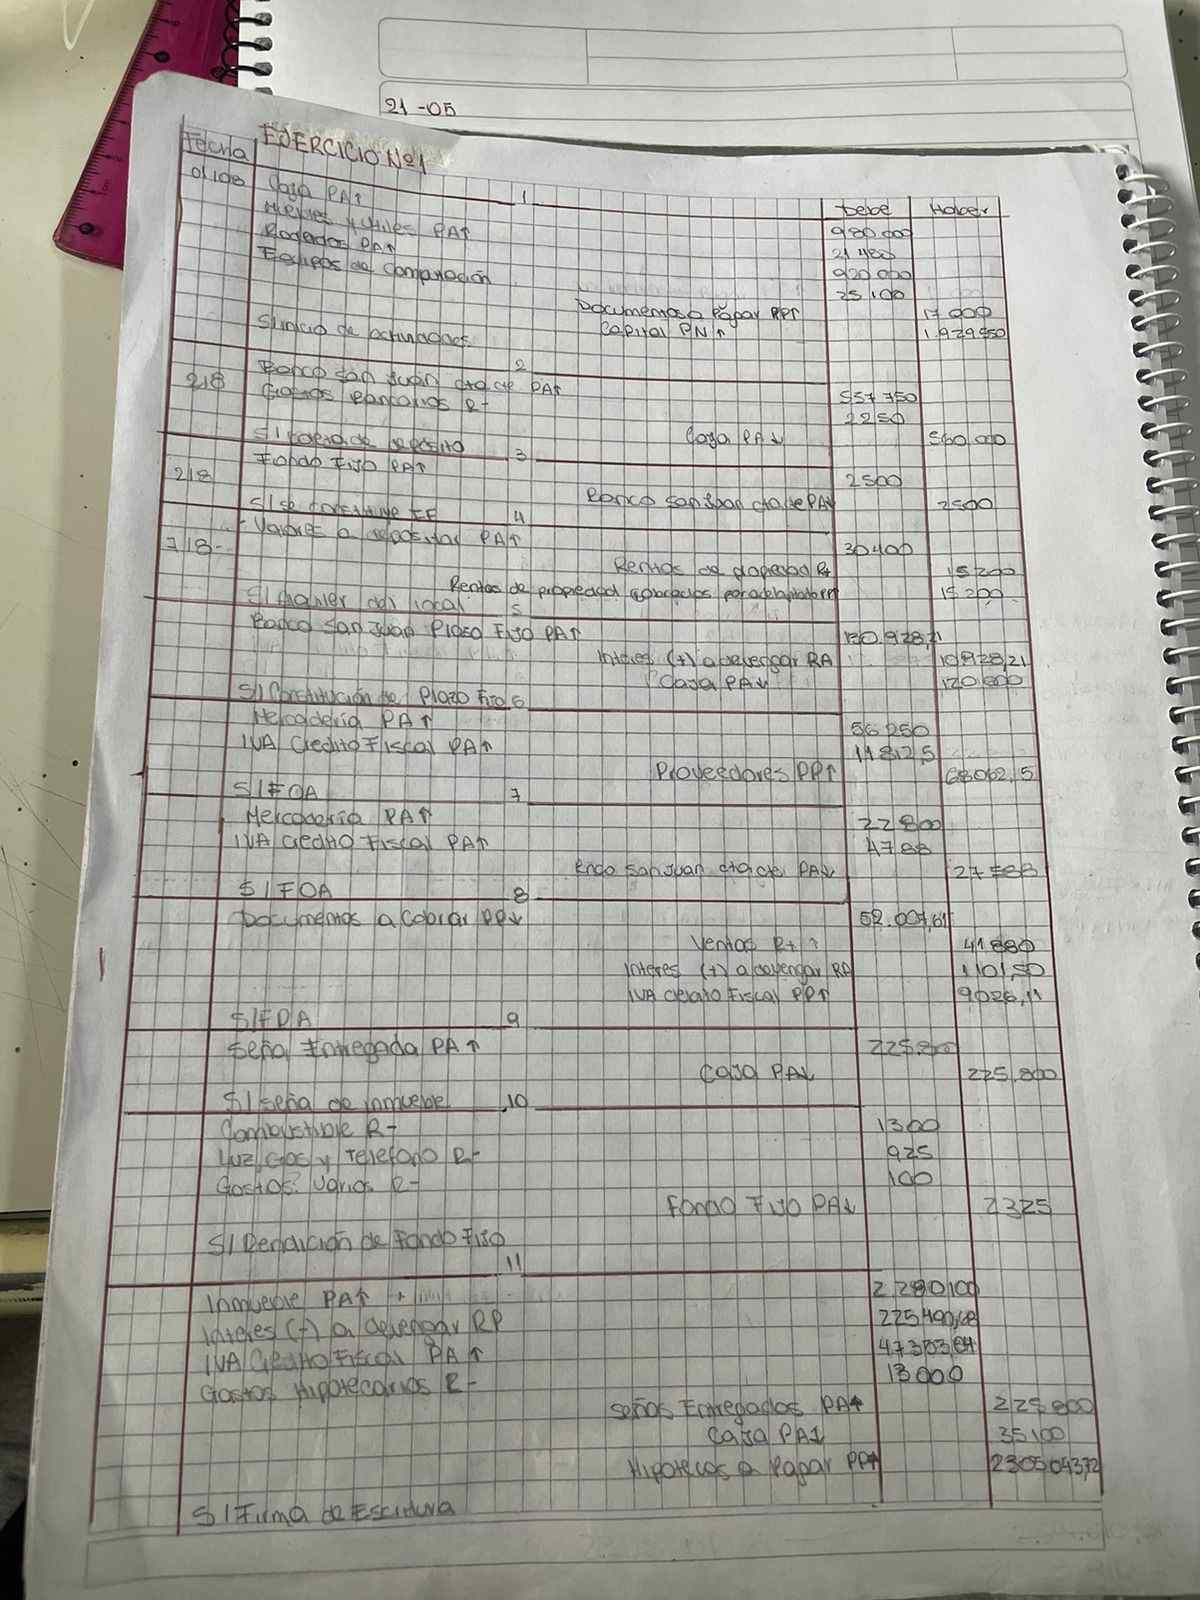 21-05
EJERCICIO Nº1
Fecha
Debe Haber
01/08 Caja PA↑ 1 980.000
Muebles y útiles PA↑ 21 480
Rodados PA↑ 920 000
Equipos de Computación 25 100
Documentos a Pagar PP↑ 17 000
Capital PN↑ 1.929.550
S/inicio de actividades
2
2/8 Banco San Juan cta cte PA↑ 557 750
Gastos Bancarios R- 2250
Caja PA↓ 560.000
S/ de depósito
3
2/8 Fondo Fijo PA↑ 2500
Banco San Juan cta cte PA↓ 2500
S/se constituye FF
4
7/8- Valores a depositar PA↑ 30400
Rentas de propiedad R+ 15200
Rentas de propiedad cobradas por adelantado 15 200
S/alquiler del local
5
Banco San Juan Plazo Fijo PA↑ 130.928,21
Interes (+) a devengar RA 10.928,21
Caja PA↓ 120.000
S/Constitución de Plazo Fijo
6
Mercadería PA↑ 56 250
IVA Credito Fiscal PA↑ 11812,5
Proveedores PP↑ 68062,5
S/FOA
7
Mercadería PA↑ 22 800
IVA Credito Fiscal PA↑ 4788
Bnco San Juan cta cte PA↓ 27588
S/FOA
8
Documentos a Cobrar PP↓ 52.007,61
Ventas R+ ↑ 41880
Interes (+) a devengar RA 1101,50
IVA Fiscal PP↑ 9026,11
S/FDA
9
Seña Entregada PA↑ 225.800
Caja PA↓ 225.800
S/seña de inmueble
10
Combustible R- 1300
Luz, Gas y Telefono R- 925
Gastos Varios R- 100
Fondo Fijo PA↓ 2325
S/Rendición de Fondo Fijo
11
Inmueble PA↑ 2.280.100
Interes (-) a devengar RP 225490,68
IVA Credito Fiscal PA↑ 47353,04
Gastos Hipotecarios R- 13000
Señas Entregadas PA↑ 225.800
Caja PA↓ 35.100
Hipotecas a Pagar PP↑ 2305043,72
S/Firma de Escritura